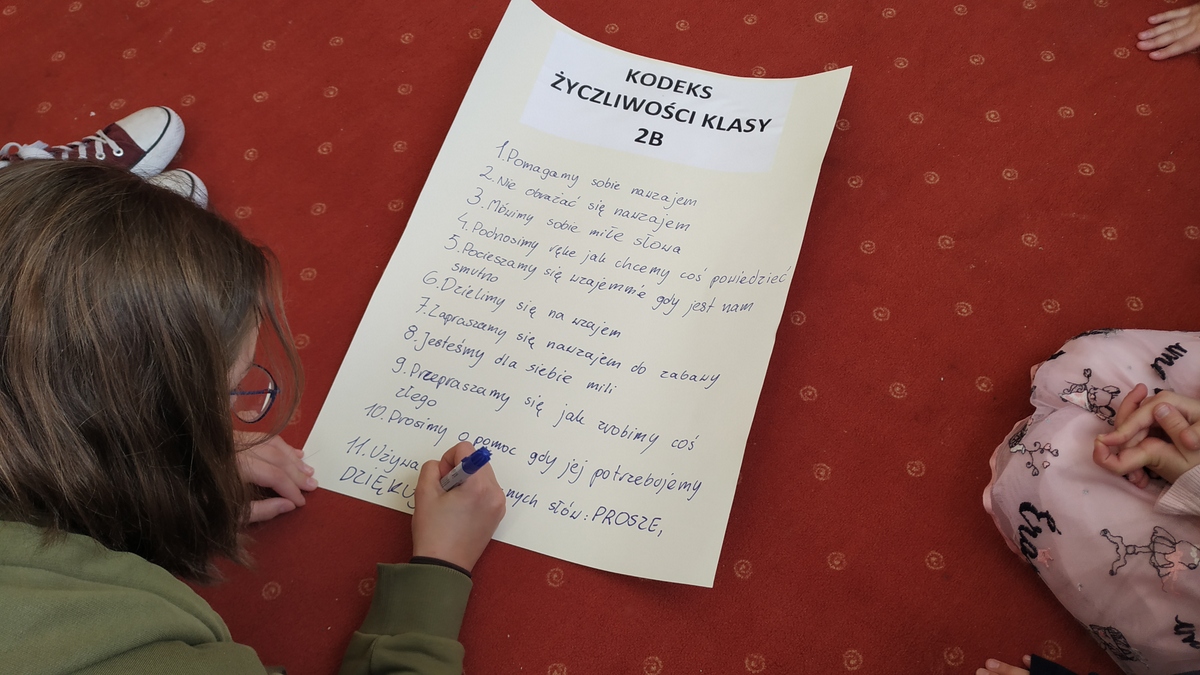 KODEKS
ŻYCZLIWOŚCI KLASY
2B
1. Pomagamy sobie nawzajem
2. Nie obrażać się nawzajem
3. Mówimy sobie miłe słowa
4. Podnosimy rękę jak chcemy coś powiedzieć
5. Pocieszamy się wzajemnie gdy jest nam
smutno
6. Dzielimy się na wzajem
7. Zapraszamy się nawzajem do zabawy
8. Jesteśmy dla siebie mili
9. Przepraszamy się jak zrobimy coś
złego
10. Prosimy o pomoc gdy jej potrzebujemy
11. Używa nych słów: PROSZĘ,
DZIĘKUJ